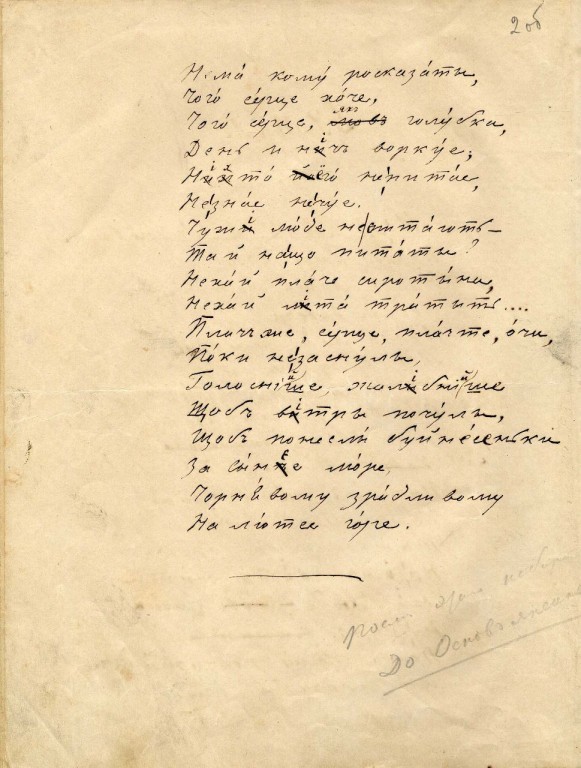 2об
Нема́ кому́ росказа́ты,
Чого́ се́рце хо́че,
Чого́ се́рце, якъ голу́бка,
День и ничъ ворку́е;
Нихто́ ёго́ непита́е,
Незна́е неčúе.
Чужи́ лю́де неспита́ють –
Та й на́що пита́ты?
Нехай пла́че сироты́на,
Неха́й лита́ тра́тыть....
Плачъ-же, се́рце, пла́чте, о́чи,
По́ки незасну́лы,
Голосні́йше, жалибні́йше
Щобъ витры́ почу́лы,
Щобъ понесли́ буйне́сенькі
За сы́нее мо́ре,
Чорня́вому зра́дливому
На лю́тее го́ре.
До Основъяненка